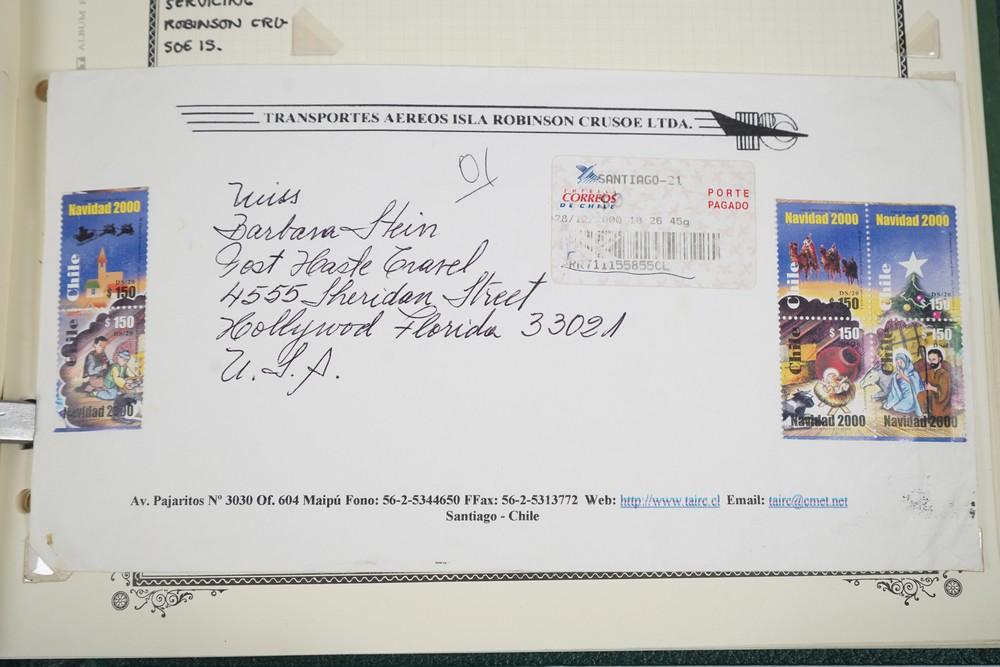 SERVICING
ROBINSON CRU-
SOE IS.
TRANSPORTES AEREOS ISLA ROBINSON CRUSOE LTDA.
01
Miss
Barbara Stein
Post Haste Travel
4555 Sheridan Street
Hollywod Florida 33021
U.S.A.
SANTIAGO-21
CORREOS
DE CHILE
PORTE
PAGADO
10 26 45g
RR711155855CL
Navidad 2000
Chile
$150
DS/20
$150
Chile
Navidad 2000
Navidad 2000
Navidad 2000
Chile
$150
Chile
DS/20
150
Chile
$150
Chile
$150
Navidad 2000
Navidad 2000
Av. Pajaritos Nº 3030 Of. 604 Maipú Fono: 56-2-5344650 FFax: 56-2-5313772 Web: http://www.tairc.cl Email: tairc@cmet.net
Santiago - Chile